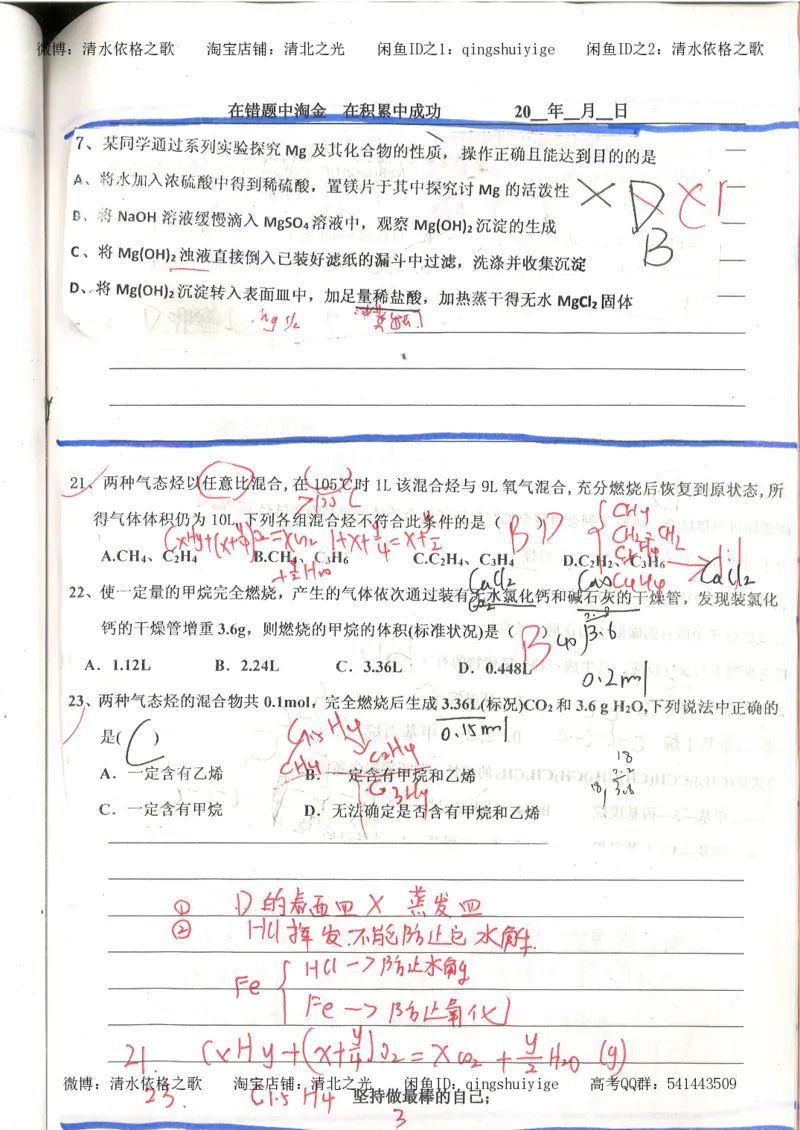 微博：清水依格之歌 淘宝店铺：清北之光 闲鱼ID之1：qingshuiyige 闲鱼ID之2：清水依格之歌
在错题中淘金 在积累中成功 20__年__月__日
7、某同学通过系列实验探究 Mg 及其化合物的性质，操作正确且能达到目的的是
A、将水加入浓硫酸中得到稀硫酸，置镁片于其中探究讨 Mg 的活泼性
B、将 NaOH 溶液缓慢滴入 MgSO₄ 溶液中，观察 Mg(OH)₂ 沉淀的生成
D
B
C、将 Mg(OH)₂ 浊液直接倒入已装好滤纸的漏斗中过滤，洗涤并收集沉淀
D、将 Mg(OH)₂ 沉淀转入表面皿中，加足量稀盐酸，加热蒸干得无水 MgCl₂ 固体
21、两种气态烃以任意比混合,在 105℃时 1L 该混合烃与 9L 氧气混合,充分燃烧后恢复到原状态,所
>100℃
CH4
得气体体积仍为 10L,下列各组混合烃不符合此条件的是（ BD ）
CH2=CH2
CxHy+(x+y/4)O2=xCO2 1+x+y/4=x+y/2
A.CH₄、C₂H₄ B.CH₄、C₃H₆ C.C₂H₄、C₃H₄ D.C₂H₂、C₃H₆
+y/2H2O
CaCl2
22、使一定量的甲烷完全燃烧，产生的气体依次通过装有无水氯化钙和碱石灰的干燥管，发现装氯化
钙的干燥管增重 3.6g，则燃烧的甲烷的体积(标准状况)是（ B ）
A．1.12L B．2.24L C．3.36L D．0.448L
0.2mol
23、两种气态烃的混合物共 0.1mol，完全燃烧后生成 3.36L(标况)CO₂ 和 3.6 g H₂O,下列说法中正确的
是( C )
C1.5H4
0.15mol
CH4
C2H4
C3H4
A．一定含有乙烯 B．一定含有甲烷和乙烯
18
3.6
C．一定含有甲烷 D．无法确定是否含有甲烷和乙烯
① D的表面皿X 蒸发皿
② HCl挥发.不能防止它水解.
Fe { HCl->防止水解
Fe->防止氧化
21. CxHy+(x+y/4)O2=xCO2+y/2H2O (g)
微博：清水依格之歌 淘宝店铺：清北之光 闲鱼ID：qingshuiyige 高考QQ群：541443509
23. C1.5H4 坚持做最棒的自己；
3